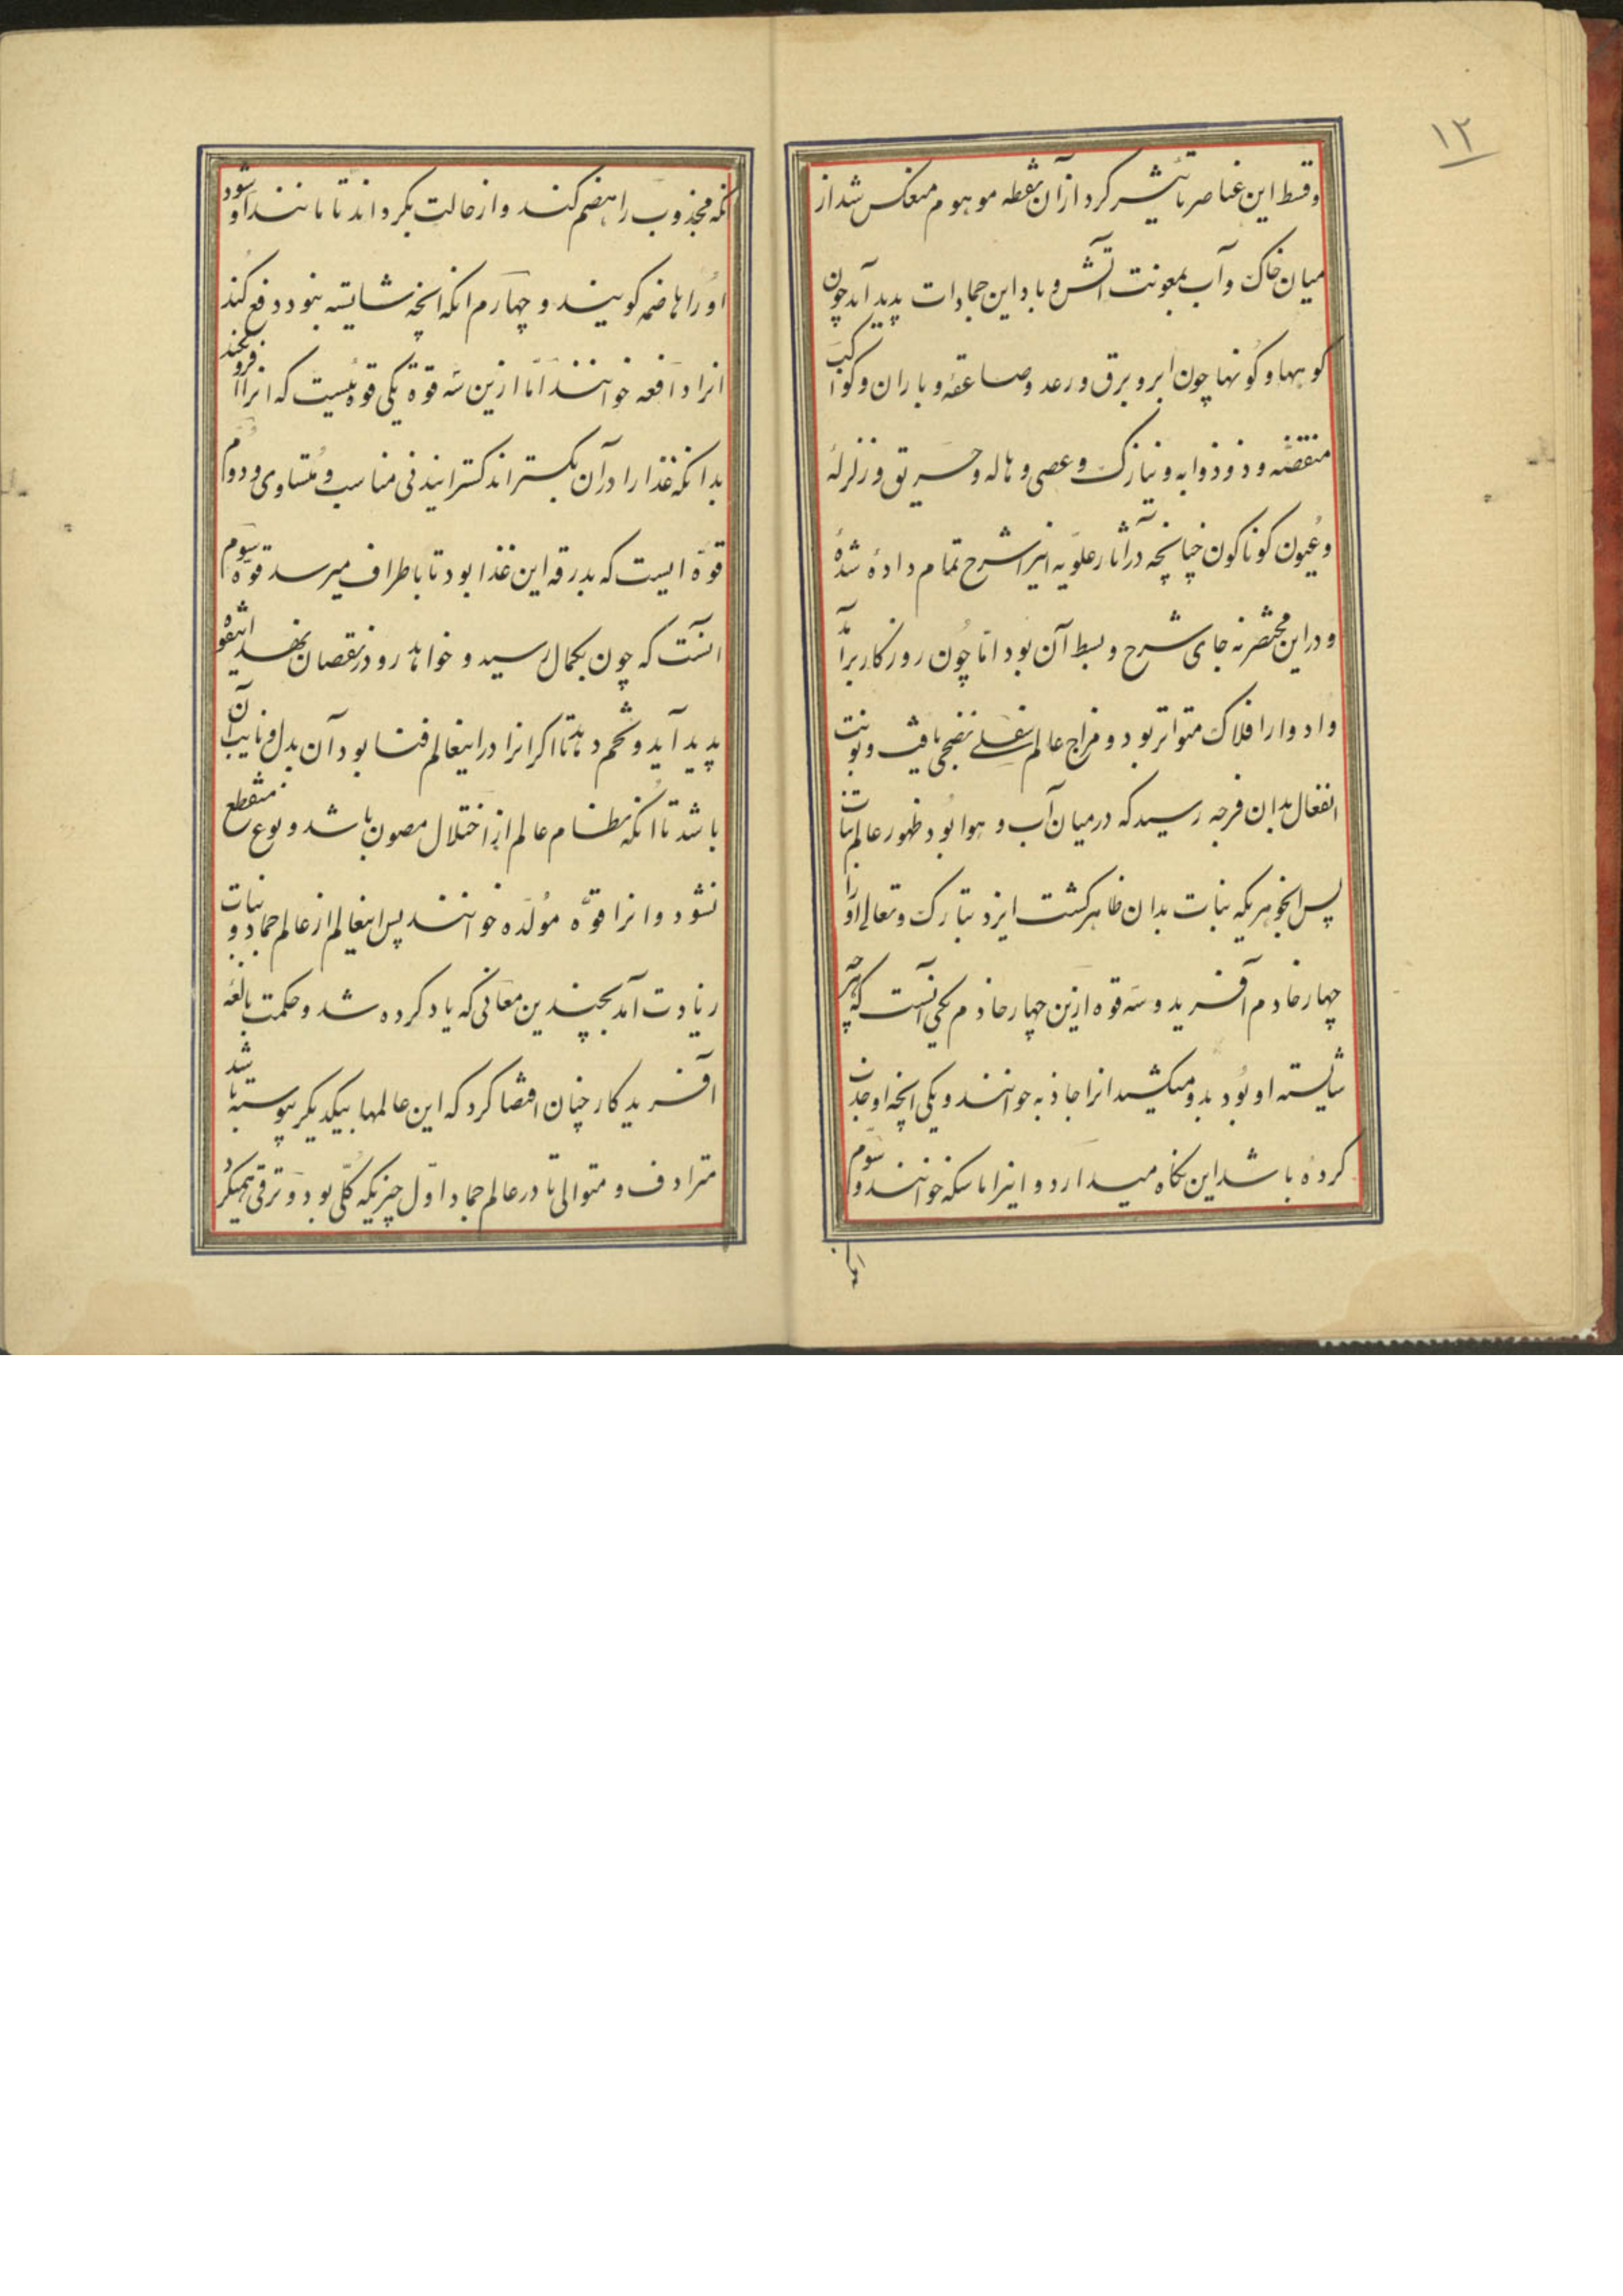 ۱۲
وقسط این عناصر تاثیر کرد از آن نقطه موهوم منعکس شد از
میان خاک و آب بمعونت آتش و باد این جمادات پدید آمد چون
کوهها و کونها چون ابر و برق و رعد و صاعقه و باران و کواکب
منقضه و ذو ذوابه و نیازک و عصی و هاله و حریق و زلزله
و عیون کوناکون چنانچه در آثار علویه اینرا شرح تمام داده شده
و در این مختصر نه جای شرح و بسط آن بود اما چون روزکار برآمد
و ادوار افلاک متواتر بود و مزاج عالم سفلی نضجی یافت و نوبت
انفعال بدان فرجه رسید که در میان آب و هوا بود ظهور عالم نبات
پس اینجوهریکه نبات بدان ظاهر کشت ایزد تبارک و تعالی اورا
چهار خادم آفرید و سه قوه ازین چهار خادم یکی آنست که هر چه
شایسته او بود بدو میکشید انرا جاذبه خوانند و یکی انچه او جذب
کرده باشد این نکاه میدارد و اینرا ماسکه خوانند و سوم
آنکه
انکه مجذوب را هضم کند و از حالت بکرداند تا مانند او شود
او را هاضمه کویند و چهارم انکه انچه شایسته نبود دفع کند
انرا دافعه خوانند اما ازین سه قوة یکی قوه ئیست که انرا افزون کند
بدانکه غذا را در آن بکستراند کسترانیدنی مناسب و متساوی و دوم
قوة ایست که بدرقه این غذا بود تا باطراف میرسد قوه سوم
آنست که چون بکمال رسید و خواهد رو در نقصان نهد این قوه
پدید آید و تخم دهد تا اکر انرا در اینعالم فنا بود آن بدل و نایب آن
باشد تا انکه نظام عالم از اختلال مصون باشد و نوع منقطع
نشود و انرا قوه مولده خوانند پس اینعالم از عالم جماد و نبات
زیادت آمد بچندین معانی که یاد کرده شد و حکمت بالغه
آفرید کار چنان اقتضا کرد که این عالمها بیکدیکر پیوسته باشد
مترادف و متوالی تا در عالم جماد اول چیزیکه کلی بود و ترقی همیکرد